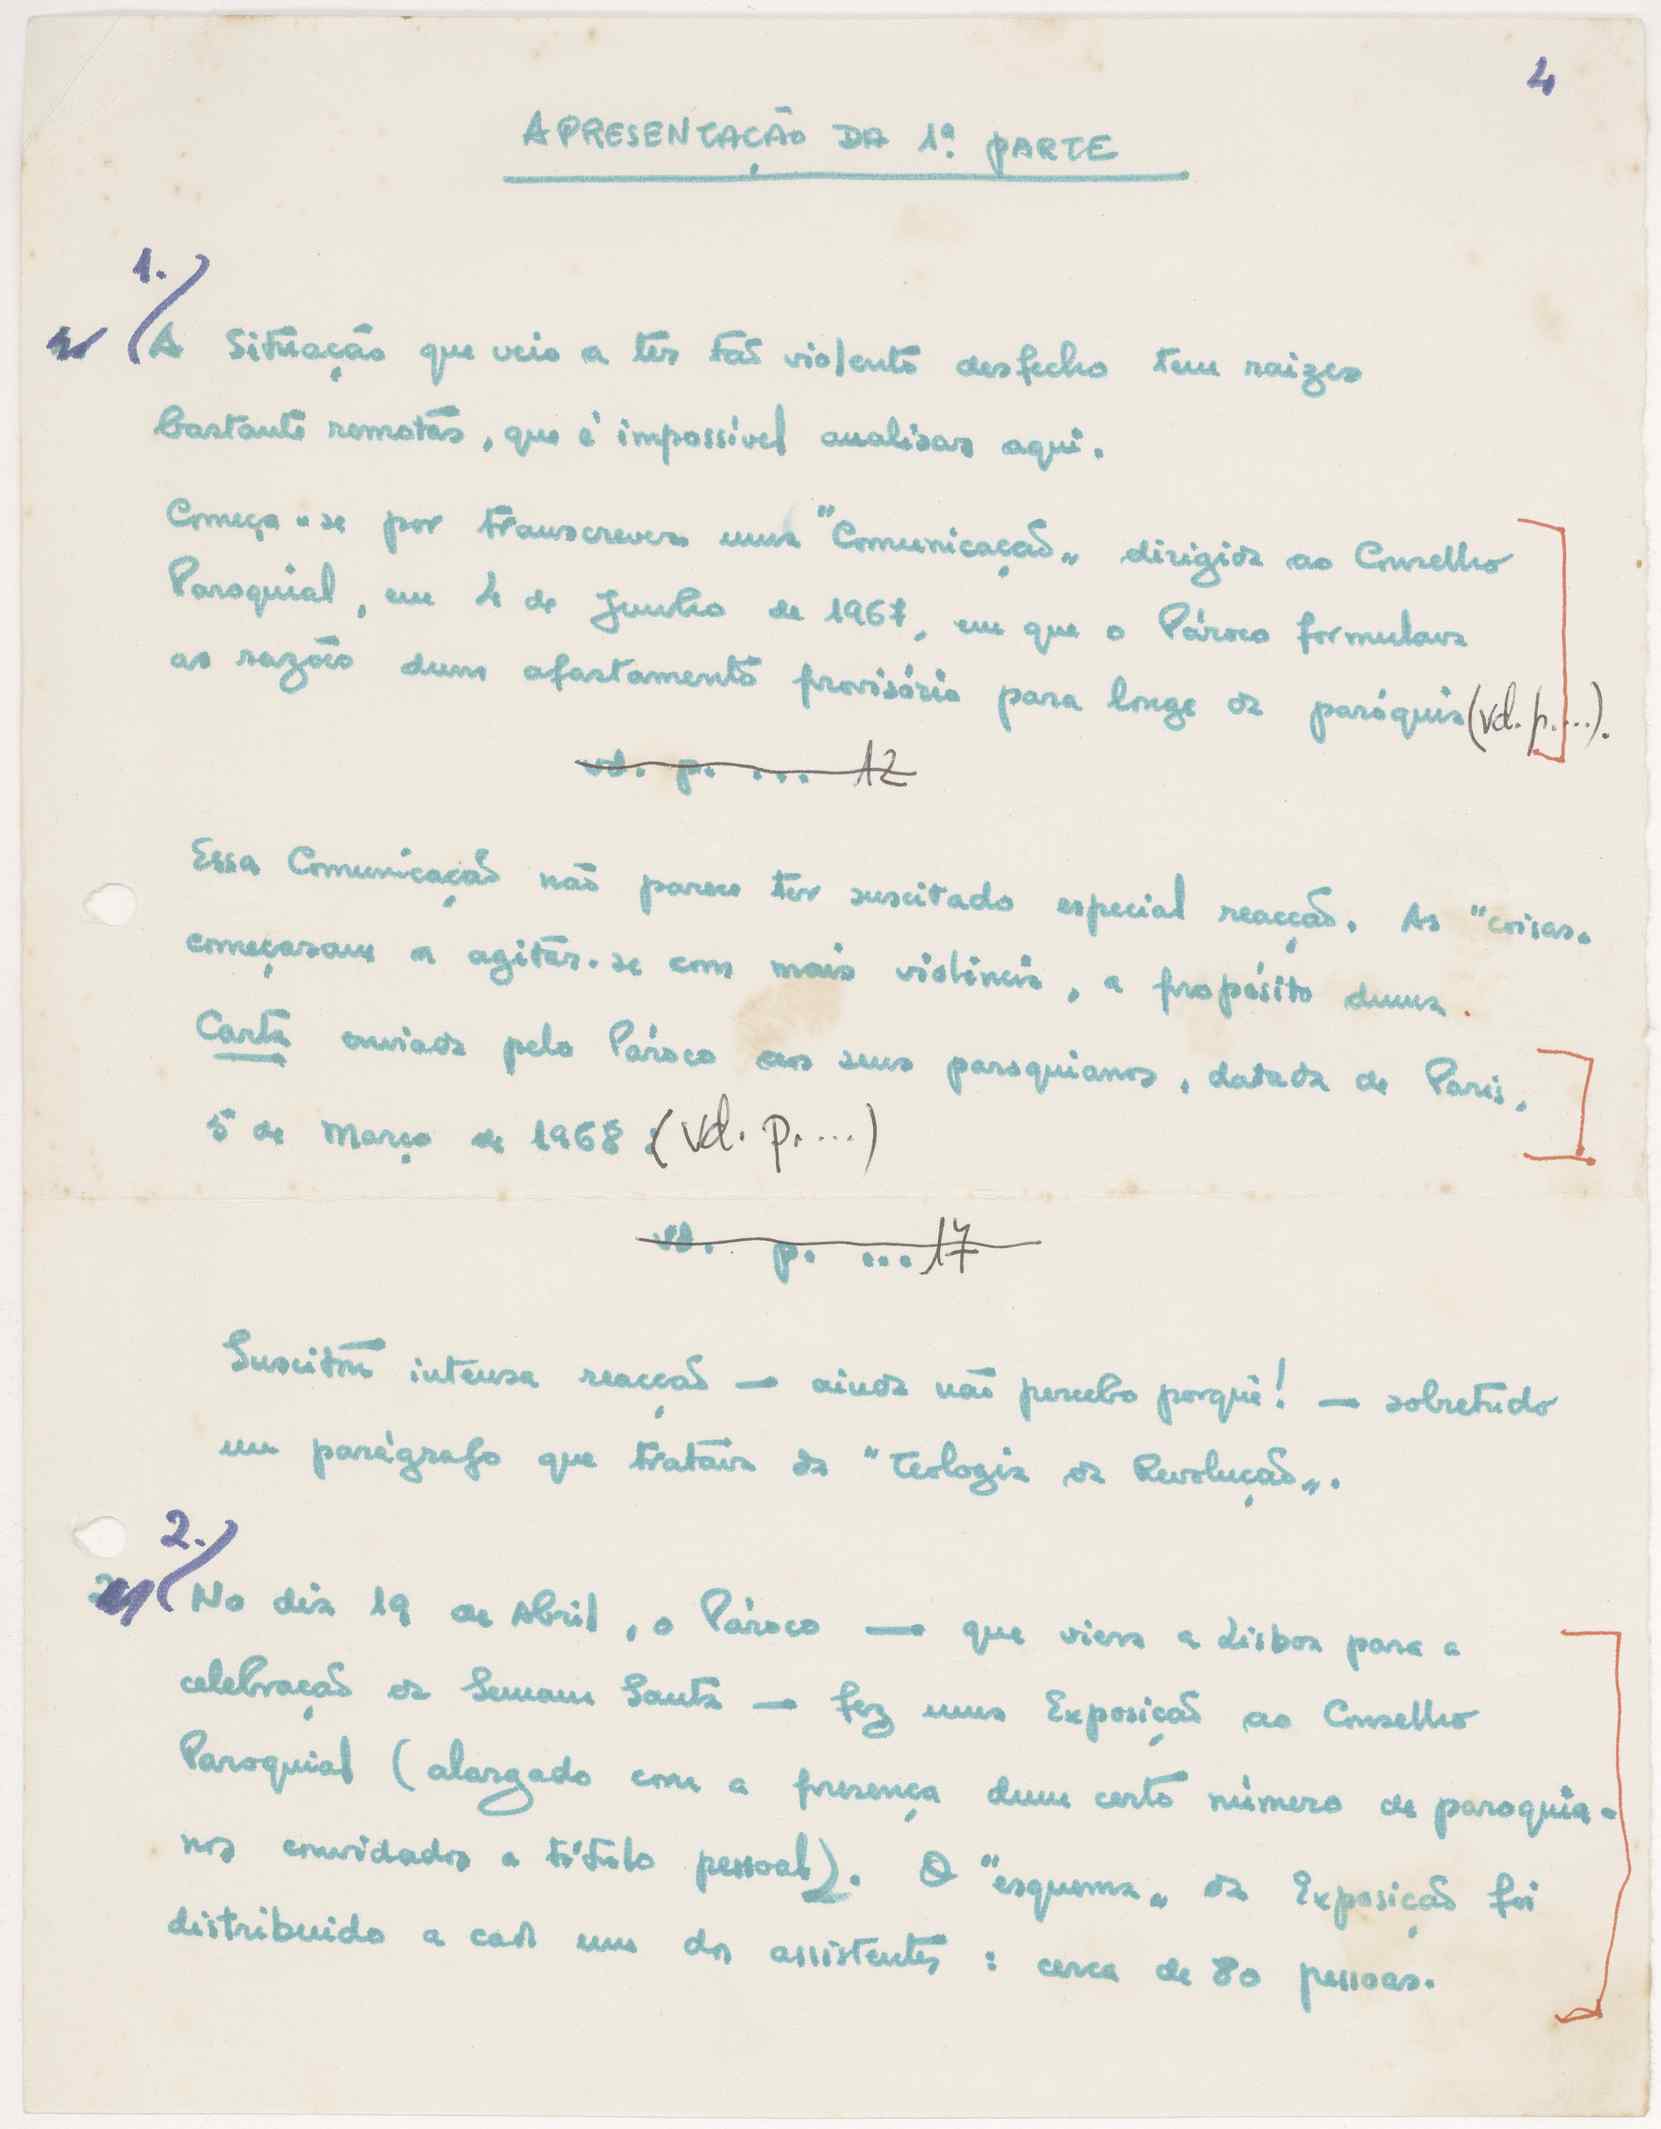 4
APRESENTAÇÃO DA 1ª PARTE
1.
A situação que veio a ter tão violento desfecho tem raizes
bastante remotas, que é impossível analisar aqui.
Começa-se por transcrever uma "Comunicação" dirigida ao Conselho
Paroquial, em 4 de Junho de 1967, em que o Pároco formulava
as razões dum afastamento provisório para longe da paróquia (vd. p. ...).
vd. p. ... 12
Essa Comunicação não parece ter suscitado especial reacção. As "coisas"
começaram a agitar-se com mais violência, a propósito duma
Carta enviada pelo Pároco aos seus paroquianos, datada de Paris,
5 de Março de 1968: (vd. p. ...)
vd. p. ... 17
Suscitou intensa reacção — ainda não percebo porquê! — sobretudo
um parágrafo que tratava da "Teologia da Revolução".
2.
No dia 19 de Abril, o Pároco — que viera a Lisboa para a
celebração da Semana Santa — fez uma Exposição ao Conselho
Paroquial (alargado com a presença dum certo número de paroquia-
nos convidados a título pessoal). O "esquema" da Exposição foi
distribuido a cada um dos assistentes: cerca de 80 pessoas.